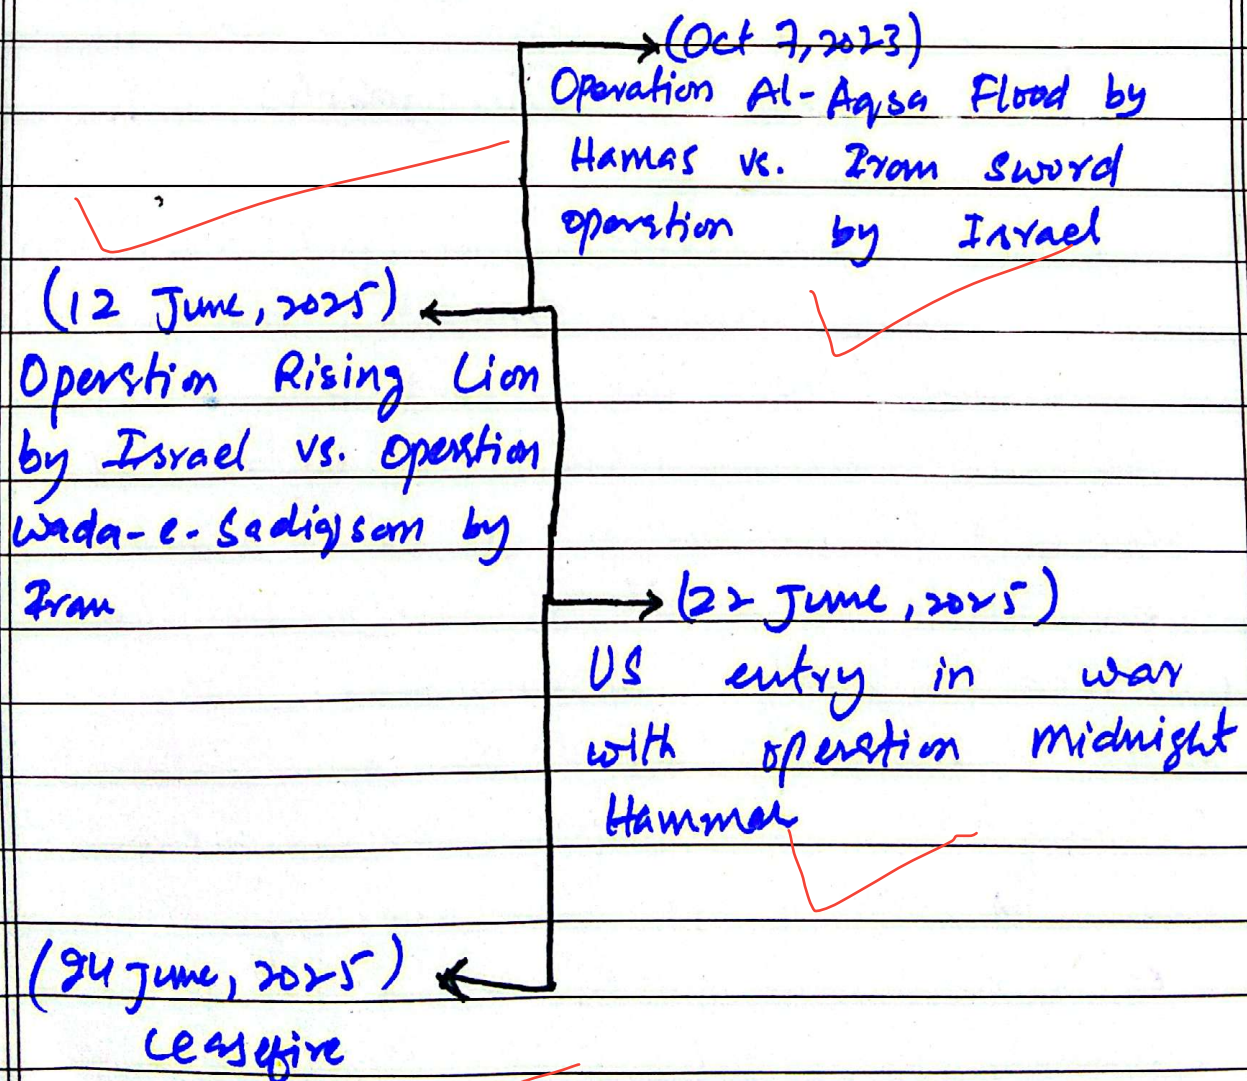 (Oct 7, 2023)
Operation Al-Aqsa Flood by
Hamas vs. Iron Sword
operation by Israel
(12 June, 2025)
Operation Rising Lion
by Israel vs. Operation
Wada-e-Sadiq som by
Iran
(22 June, 2025)
US entry in war
with operation Midnight
Hammar
(24 June, 2025)
Ceasefire